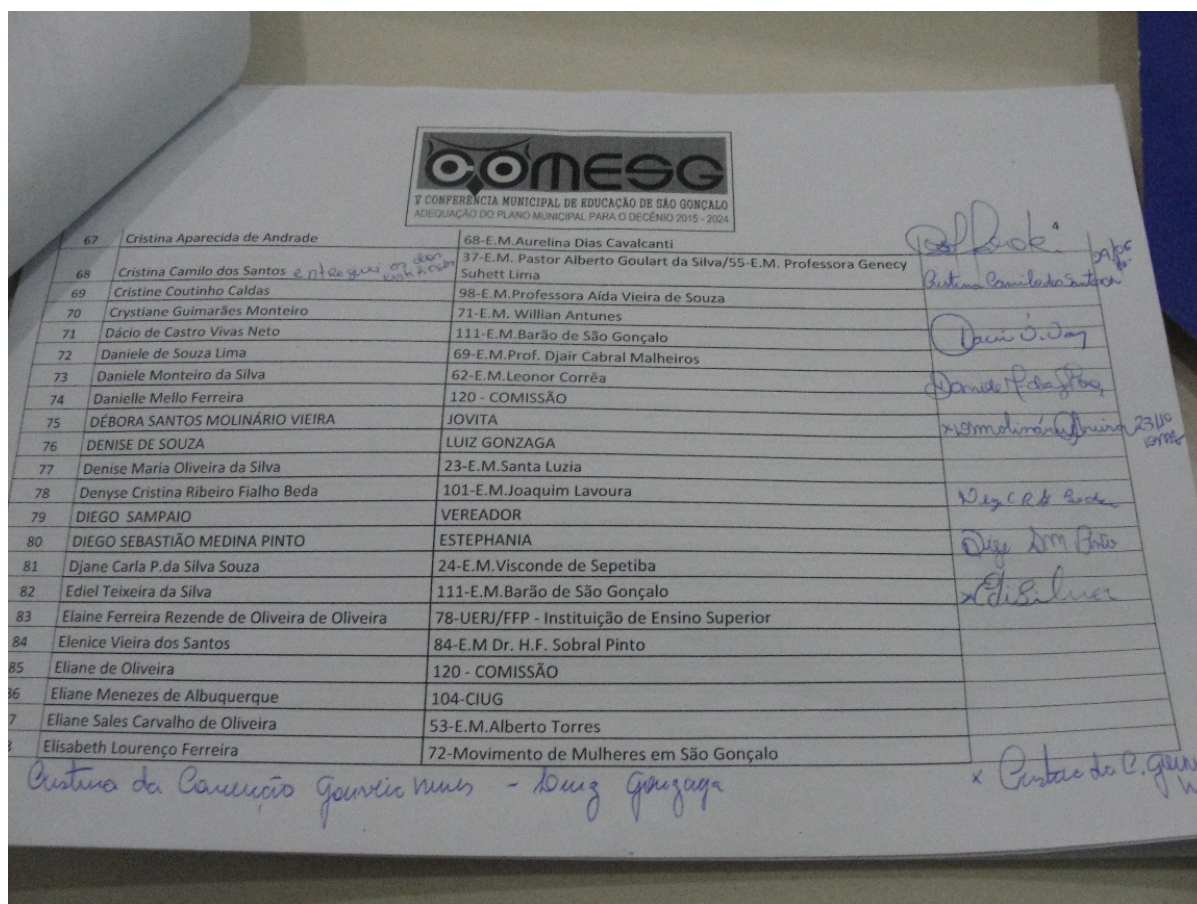 COMESG
V CONFERÊNCIA MUNICIPAL DE EDUCAÇÃO DE SÃO GONÇALO
ADEQUAÇÃO DO PLANO MUNICIPAL PARA O DECÊNIO 2015 - 2024
67 Cristina Aparecida de Andrade 68-E.M.Aurelina Dias Cavalcanti
68 Cristina Camilo dos Santos entregou os dois 37-E.M. Pastor Alberto Goulart da Silva/55-E.M. Professora Genecy Suhett Lima Cristina Camilo dos Santos
69 Cristine Coutinho Caldas 98-E.M.Professora Aída Vieira de Souza
70 Crystiane Guimarães Monteiro 71-E.M. Willian Antunes
71 Dácio de Castro Vivas Neto 111-E.M.Barão de São Gonçalo
72 Daniele de Souza Lima 69-E.M.Prof. Djair Cabral Malheiros
73 Daniele Monteiro da Silva 62-E.M.Leonor Corrêa
74 Danielle Mello Ferreira 120 - COMISSÃO
75 DÉBORA SANTOS MOLINÁRIO VIEIRA JOVITA 23/10
76 DENISE DE SOUZA LUIZ GONZAGA
77 Denise Maria Oliveira da Silva 23-E.M.Santa Luzia
78 Denyse Cristina Ribeiro Fialho Beda 101-E.M.Joaquim Lavoura
79 DIEGO SAMPAIO VEREADOR
80 DIEGO SEBASTIÃO MEDINA PINTO ESTEPHANIA
81 Djane Carla P.da Silva Souza 24-E.M.Visconde de Sepetiba
82 Ediel Teixeira da Silva 111-E.M.Barão de São Gonçalo
83 Elaine Ferreira Rezende de Oliveira de Oliveira 78-UERJ/FFP - Instituição de Ensino Superior
84 Elenice Vieira dos Santos 84-E.M Dr. H.F. Sobral Pinto
85 Eliane de Oliveira 120 - COMISSÃO
36 Eliane Menezes de Albuquerque 104-CIUG
7 Eliane Sales Carvalho de Oliveira 53-E.M.Alberto Torres
Elisabeth Lourenço Ferreira 72-Movimento de Mulheres em São Gonçalo
Cristina da Conceição Gouveia Nunes - Luiz Gonzaga